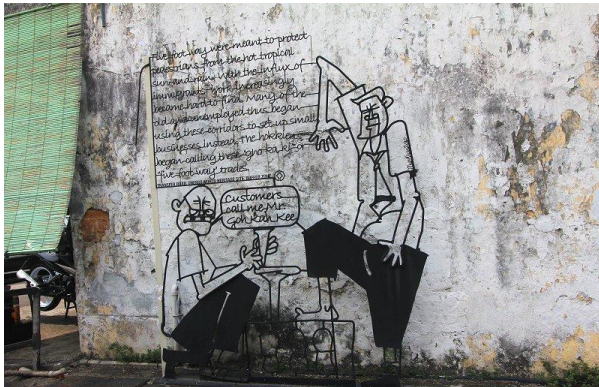 Five foot way were meant to protect
pedestrians from the hot tropical
sun and rains. With the influx of
immigrants, work increasingly
became hard to find. Many of the
old and unemployed thus began
using these corridors to set up small
businesses instead. The hokkiens
began calling these 'gho ka ki' or
'five foot way' trades.
Customers
call me Mr.
Goh Kah Kee